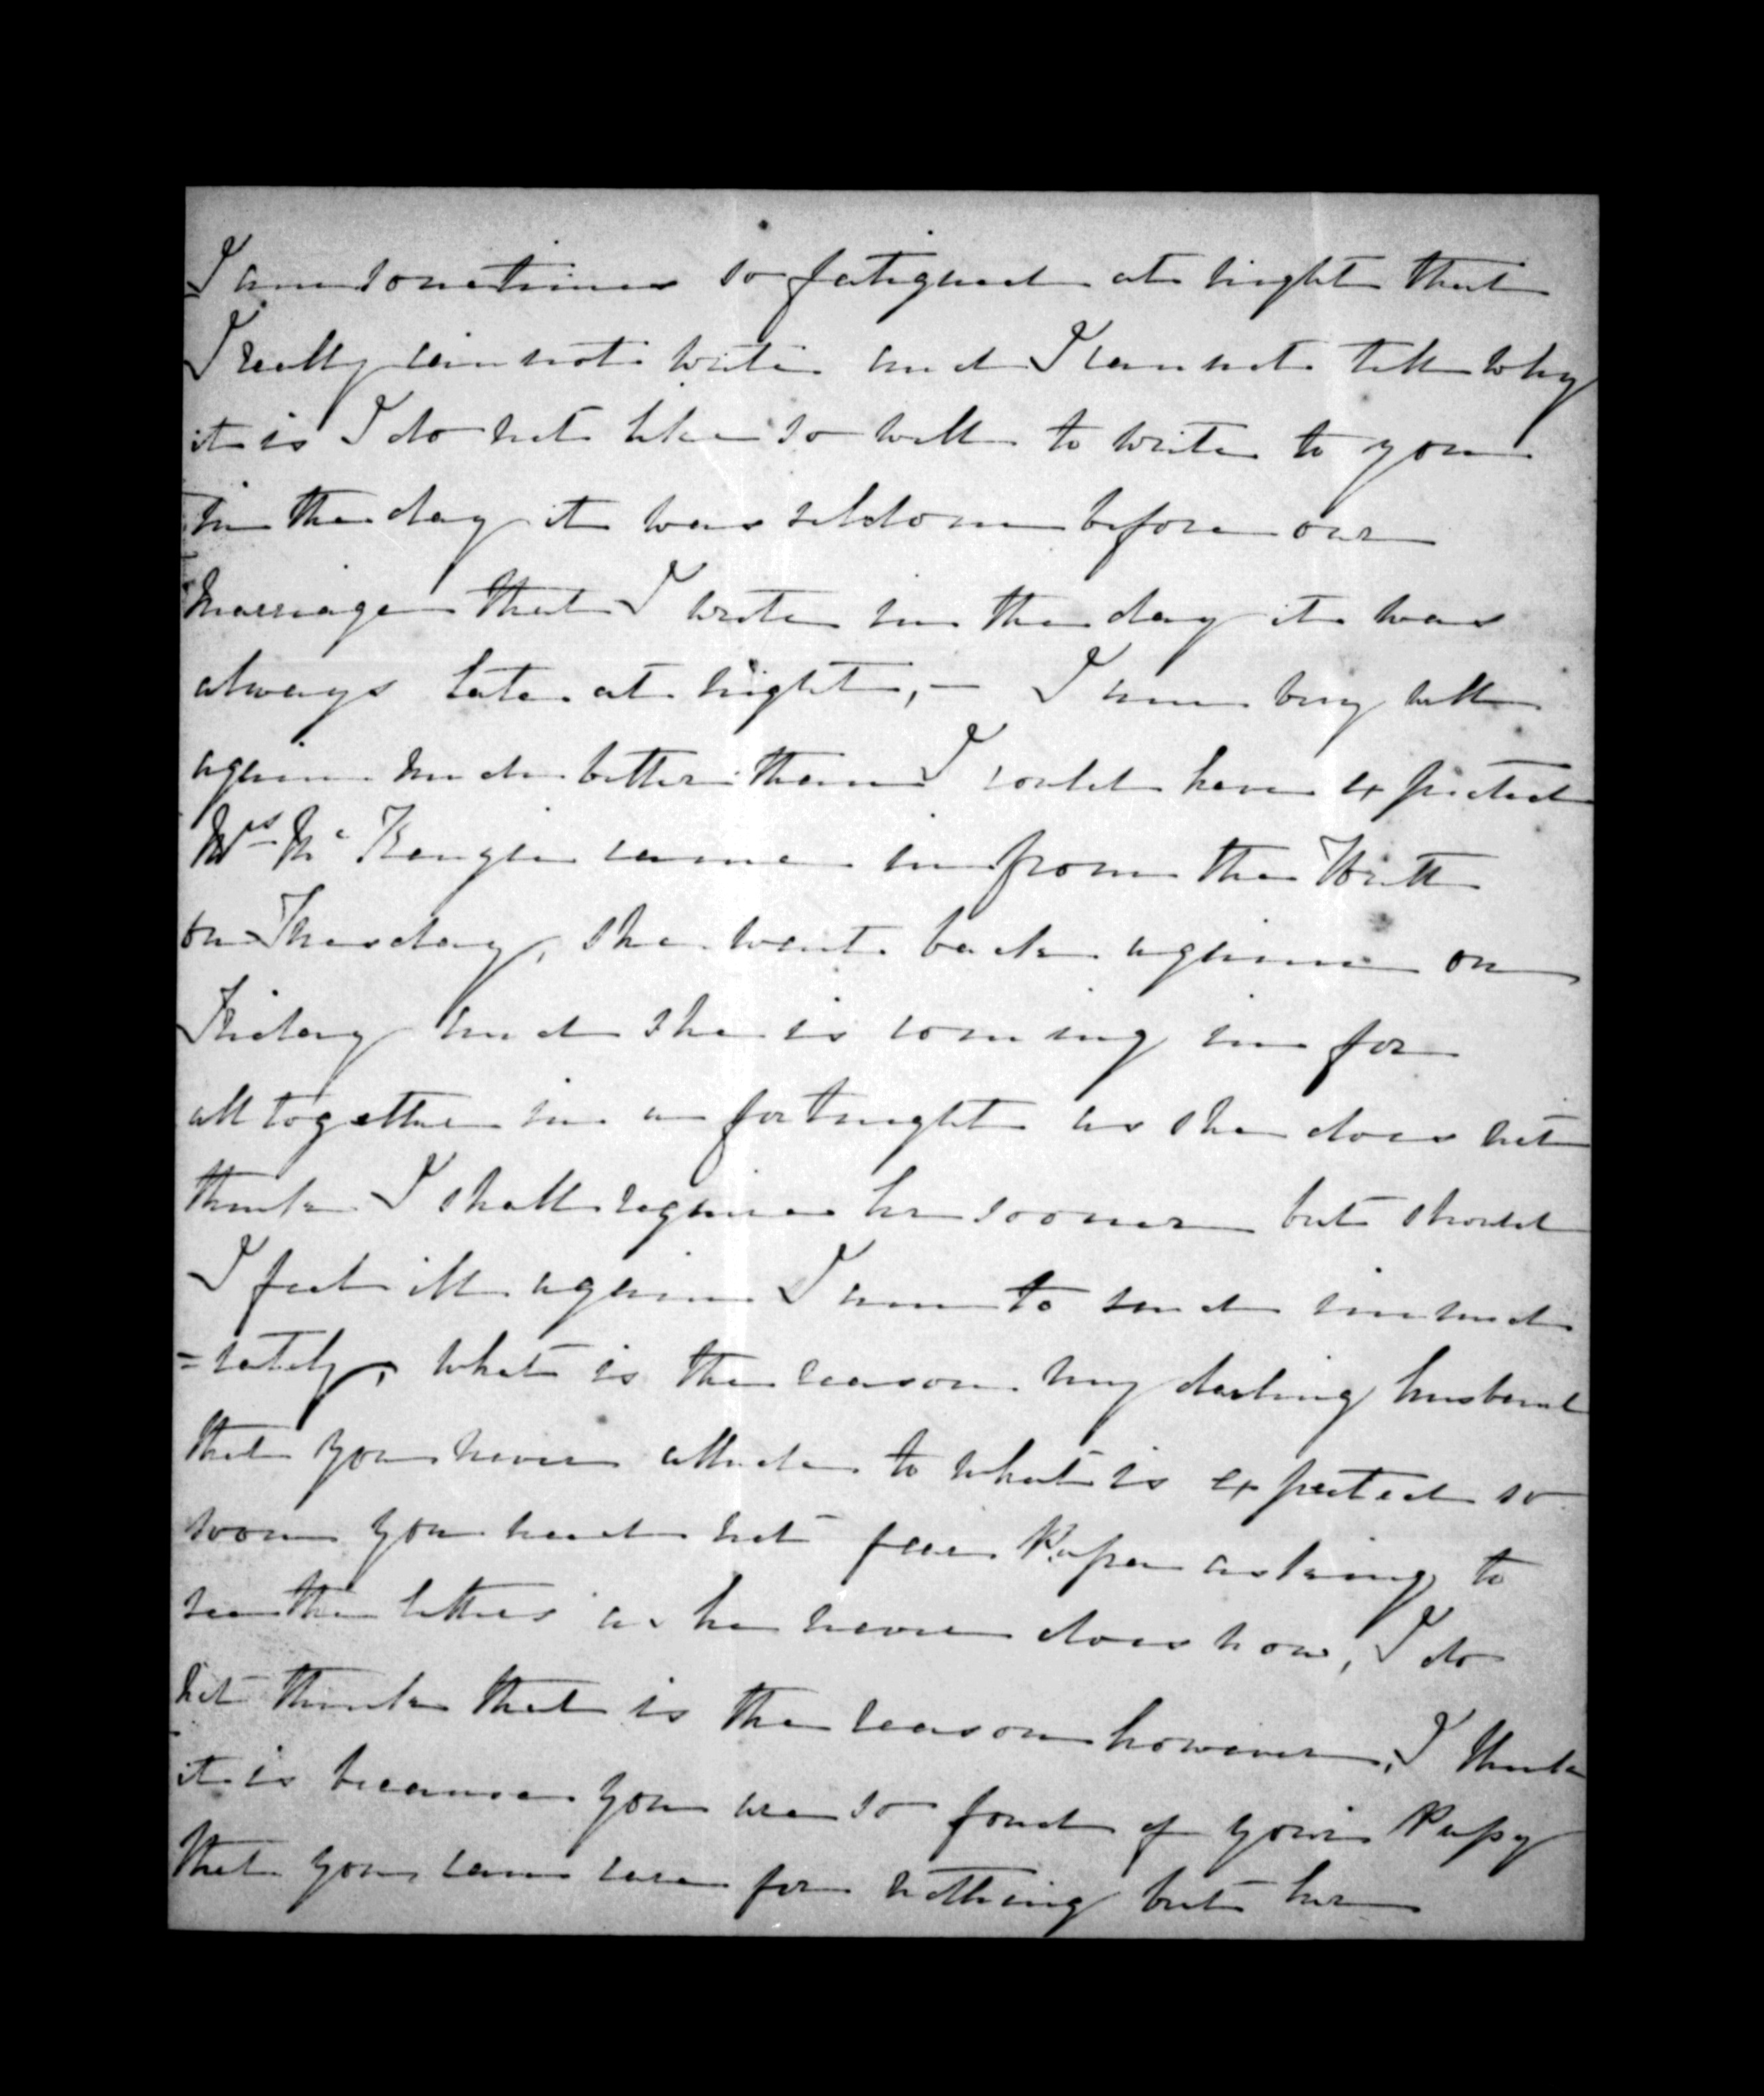 I am sometimes so fatigued at night that
I really can not write and I can not tell why
it is I do not like so well to write to you
in the day it was seldom before our
marriage that I wrote in the day it was
always late at night, — I am very well
again much better than I could have expected
Mrs Mc Kenzie came in from the Hutt
on Thursday, she went back again on
Friday and she is coming in for
alltogether in a fortnight as she does not
think I shall require her sooner but should
I feel ill again I am to send immed
=iately, what is the reason my darling husband
that you never allude to what is expected so
soon you need not fear Papa asking to
see the letters as he never does now, I do
not think that is the reason however, I think
it is because you are so fond of your
that you can care for nothing but her